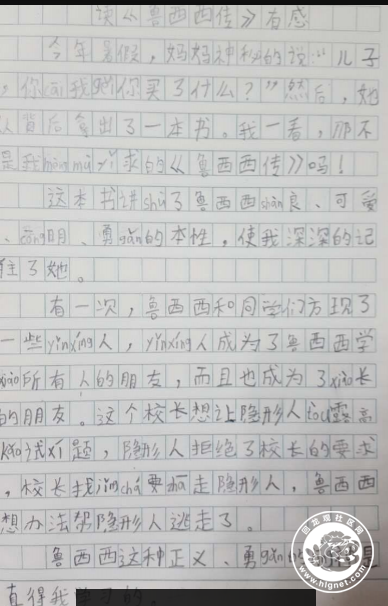 读《鲁西西传》有感
今年暑假，妈妈神秘的说“儿子
，你cāi我给你买了什么？”然后，她
从背后拿出了一本书。我一看，那不
是我mèng mèi yǐ求的《鲁西西传》吗！
这本书讲shù了鲁西西shàn良、可爱
、cōng明、勇gǎn的本性，使我深深的记
住了她。
有一次，鲁西西和同学们发现了
一些yǐnxíng人，yǐnxíng人成为了鲁西西学
xiào所有人的朋友，而且也成为了xiào长
的朋友。这个校长想让隐形人tōu露高
kǎo试题，隐形人拒绝了校长的要求
，校长找jǐng chá要 走隐形人，鲁西西
想办法帮隐形人逃走了。
鲁西西这种正义、勇gǎn
直得我学习的.
回龙观社区网
www.hlgnet.com